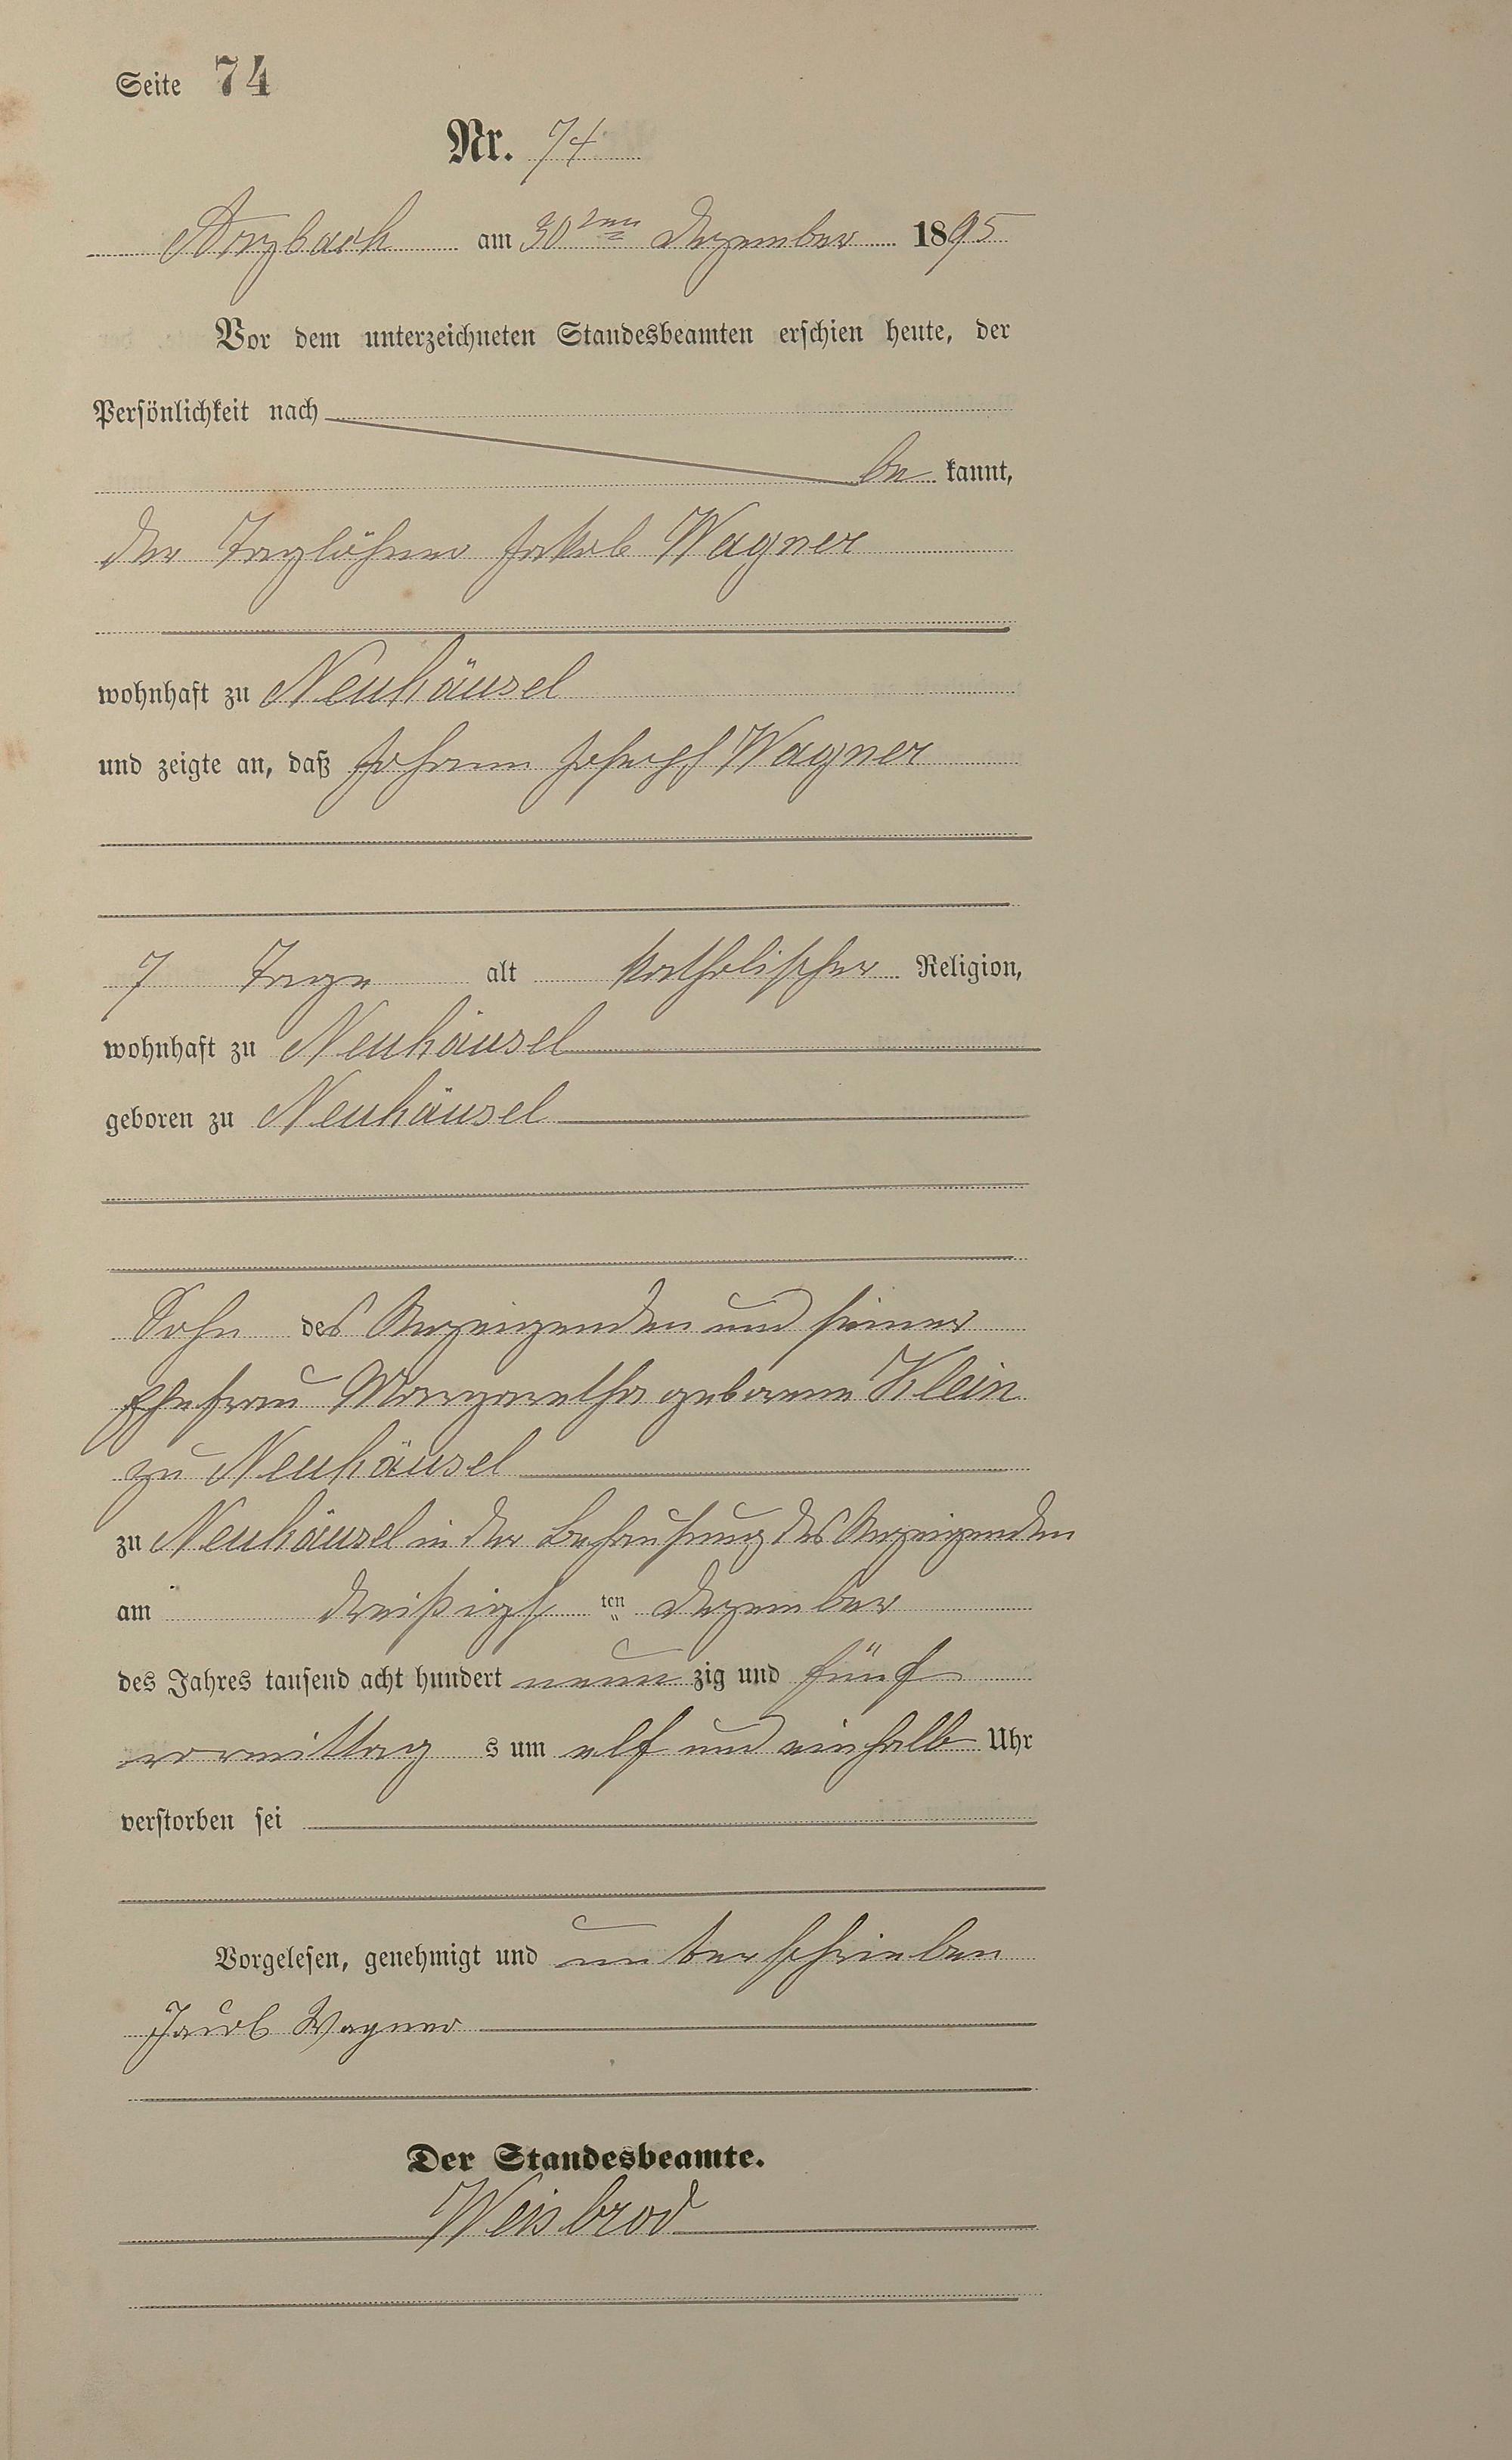 Seite 74
Nr. 74
Arzbach am 30ten Dezember 1895
Vor dem unterzeichneten Standesbeamten erschien heute, der
Persönlichkeit nach
be kannt,
der Taglöhner Jakob Wagner
wohnhaft zu Neuhäusel
und zeigte an, daß Johann Joseph Wagner
7 Tage alt katholischer Religion,
wohnhaft zu Neuhäusel
geboren zu Neuhäusel
Sohn des Anzeigenden und seiner
Ehefrau Margaretha geborene Klein
zu Neuhäusel
zu Neuhäusel in der Behausung des Anzeigenden
am dreißigs ten Dezember
des Jahres tausend acht hundert neun zig und fünf
vormittag s um elf und einhalb Uhr
verstorben sei
Vorgelesen, genehmigt und unterschrieben
Jacob Wagner
Der Standesbeamte.
Weisbrod